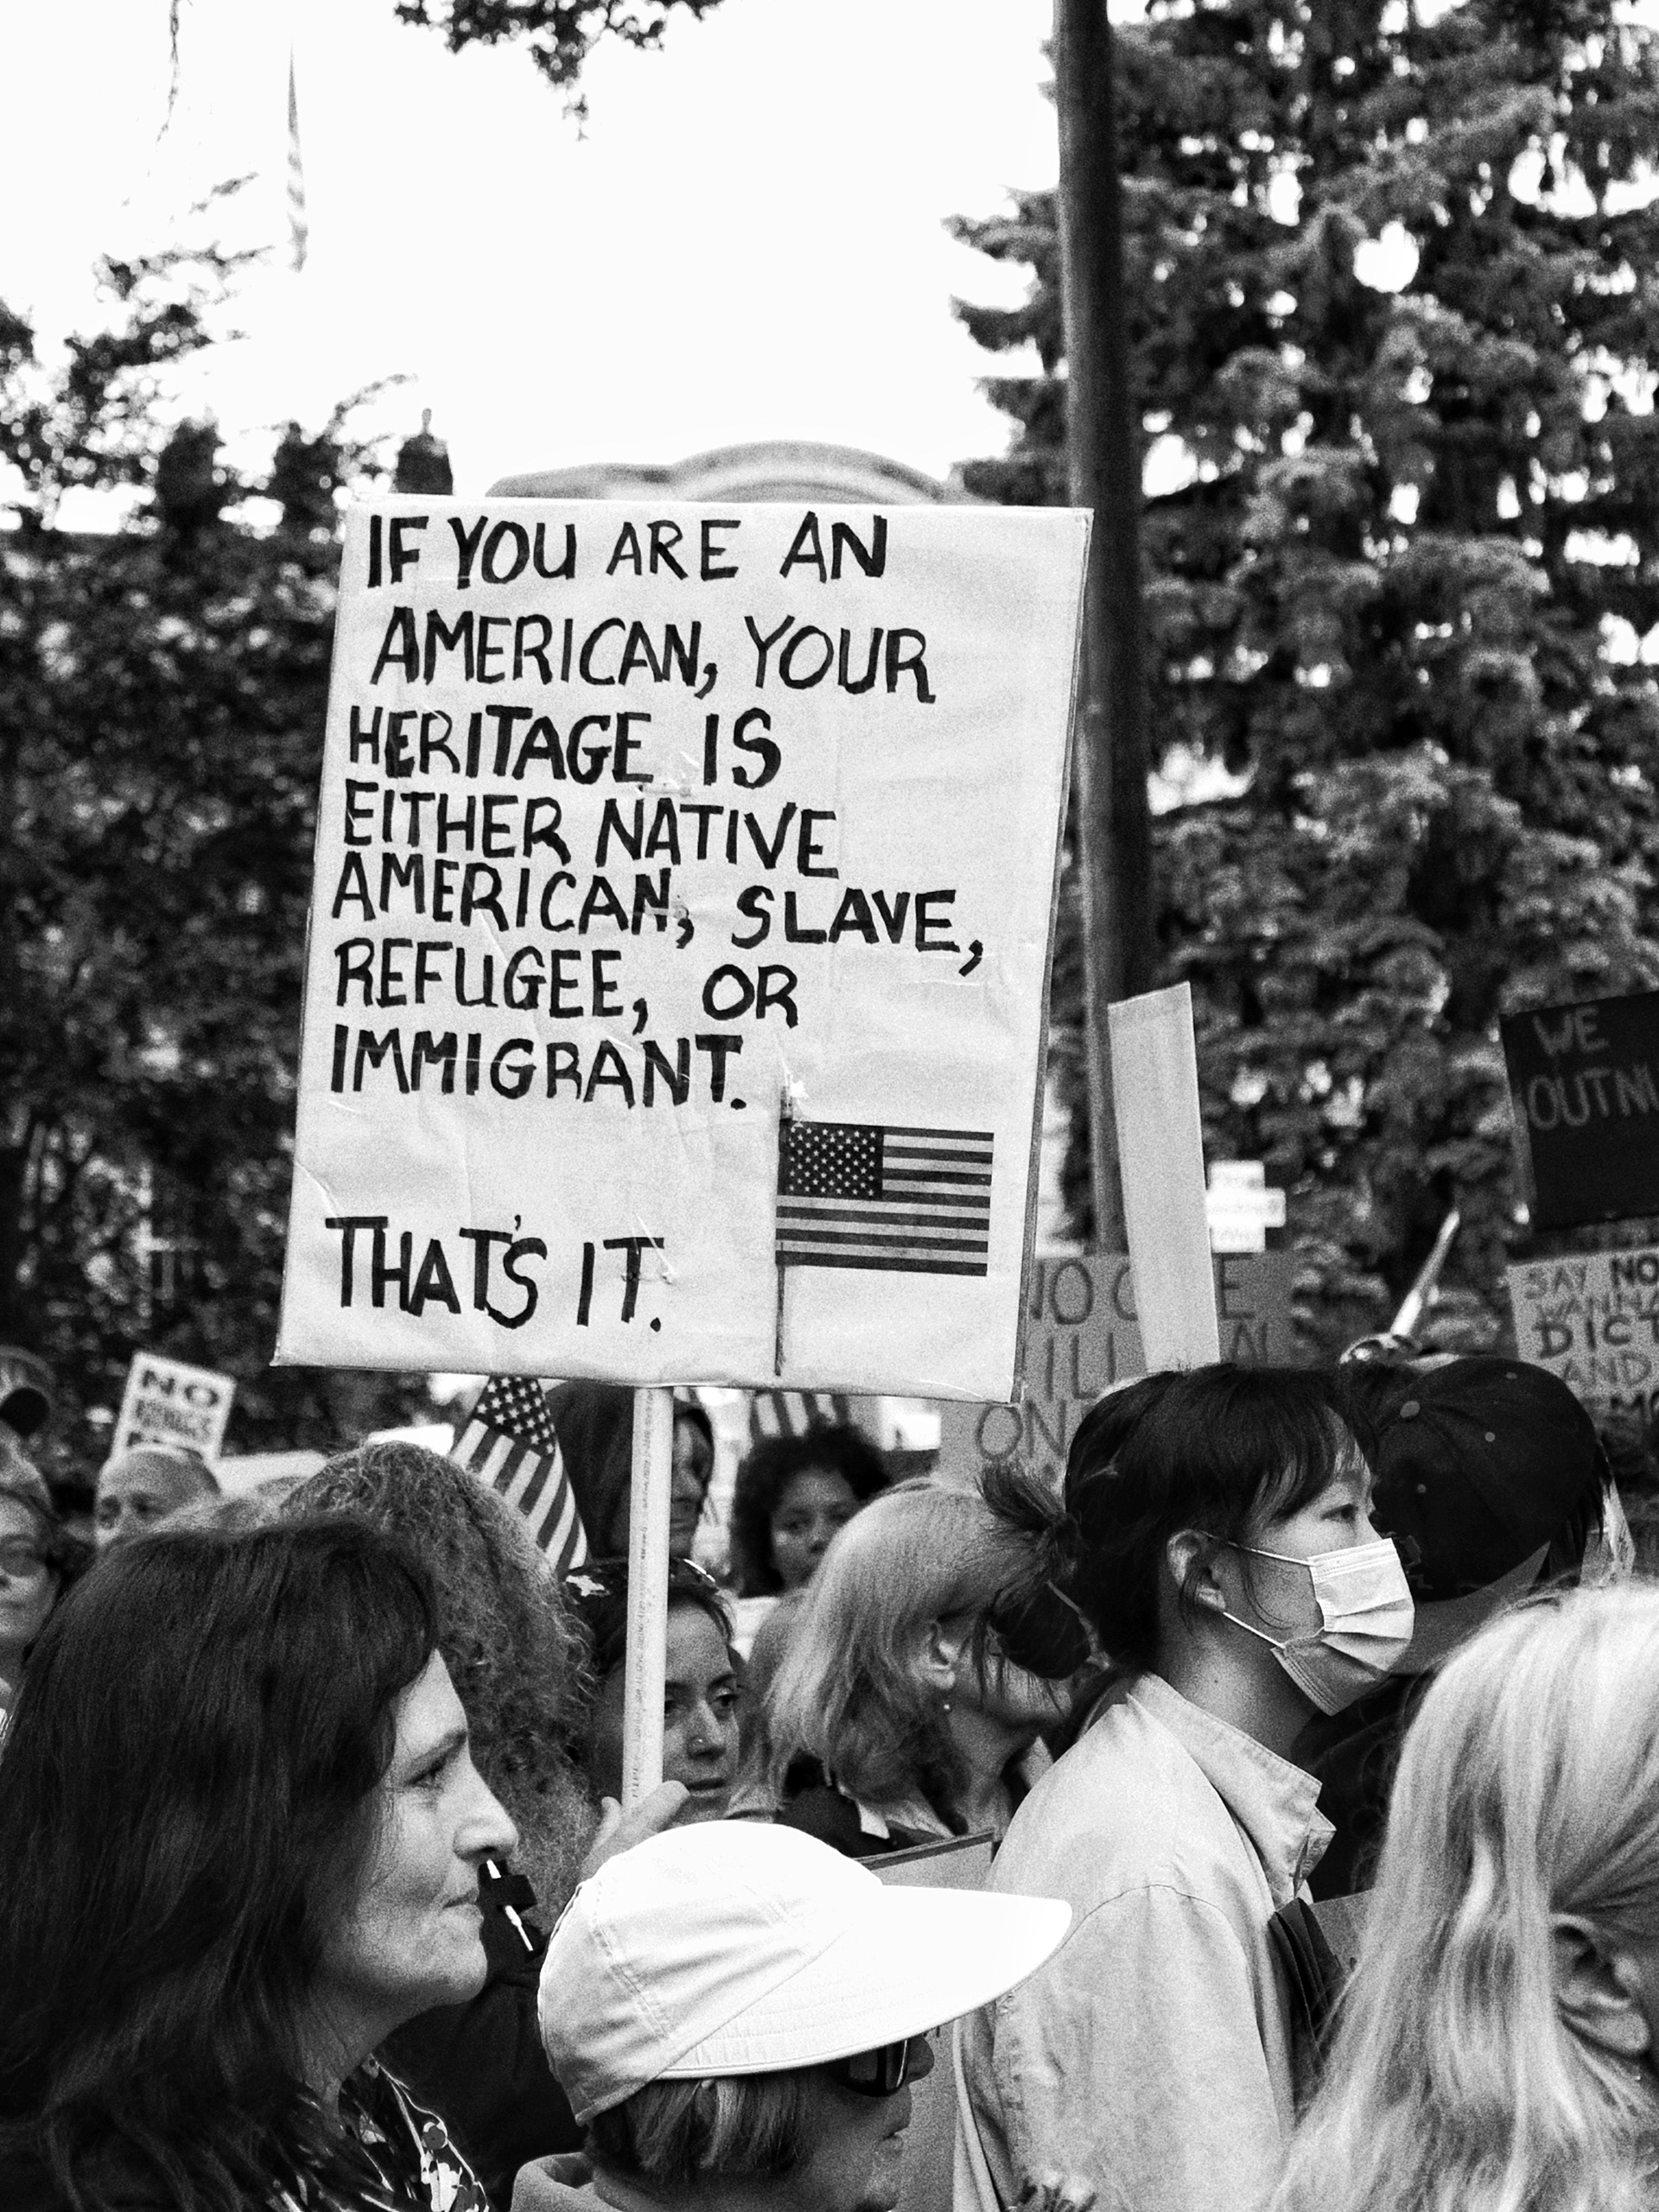 IF YOU ARE AN
AMERICAN, YOUR
HERITAGE IS
EITHER NATIVE
AMERICAN, SLAVE,
REFUGEE, OR
IMMIGRANT.
THAT'S IT.
NO
WE
SAY NO
AND